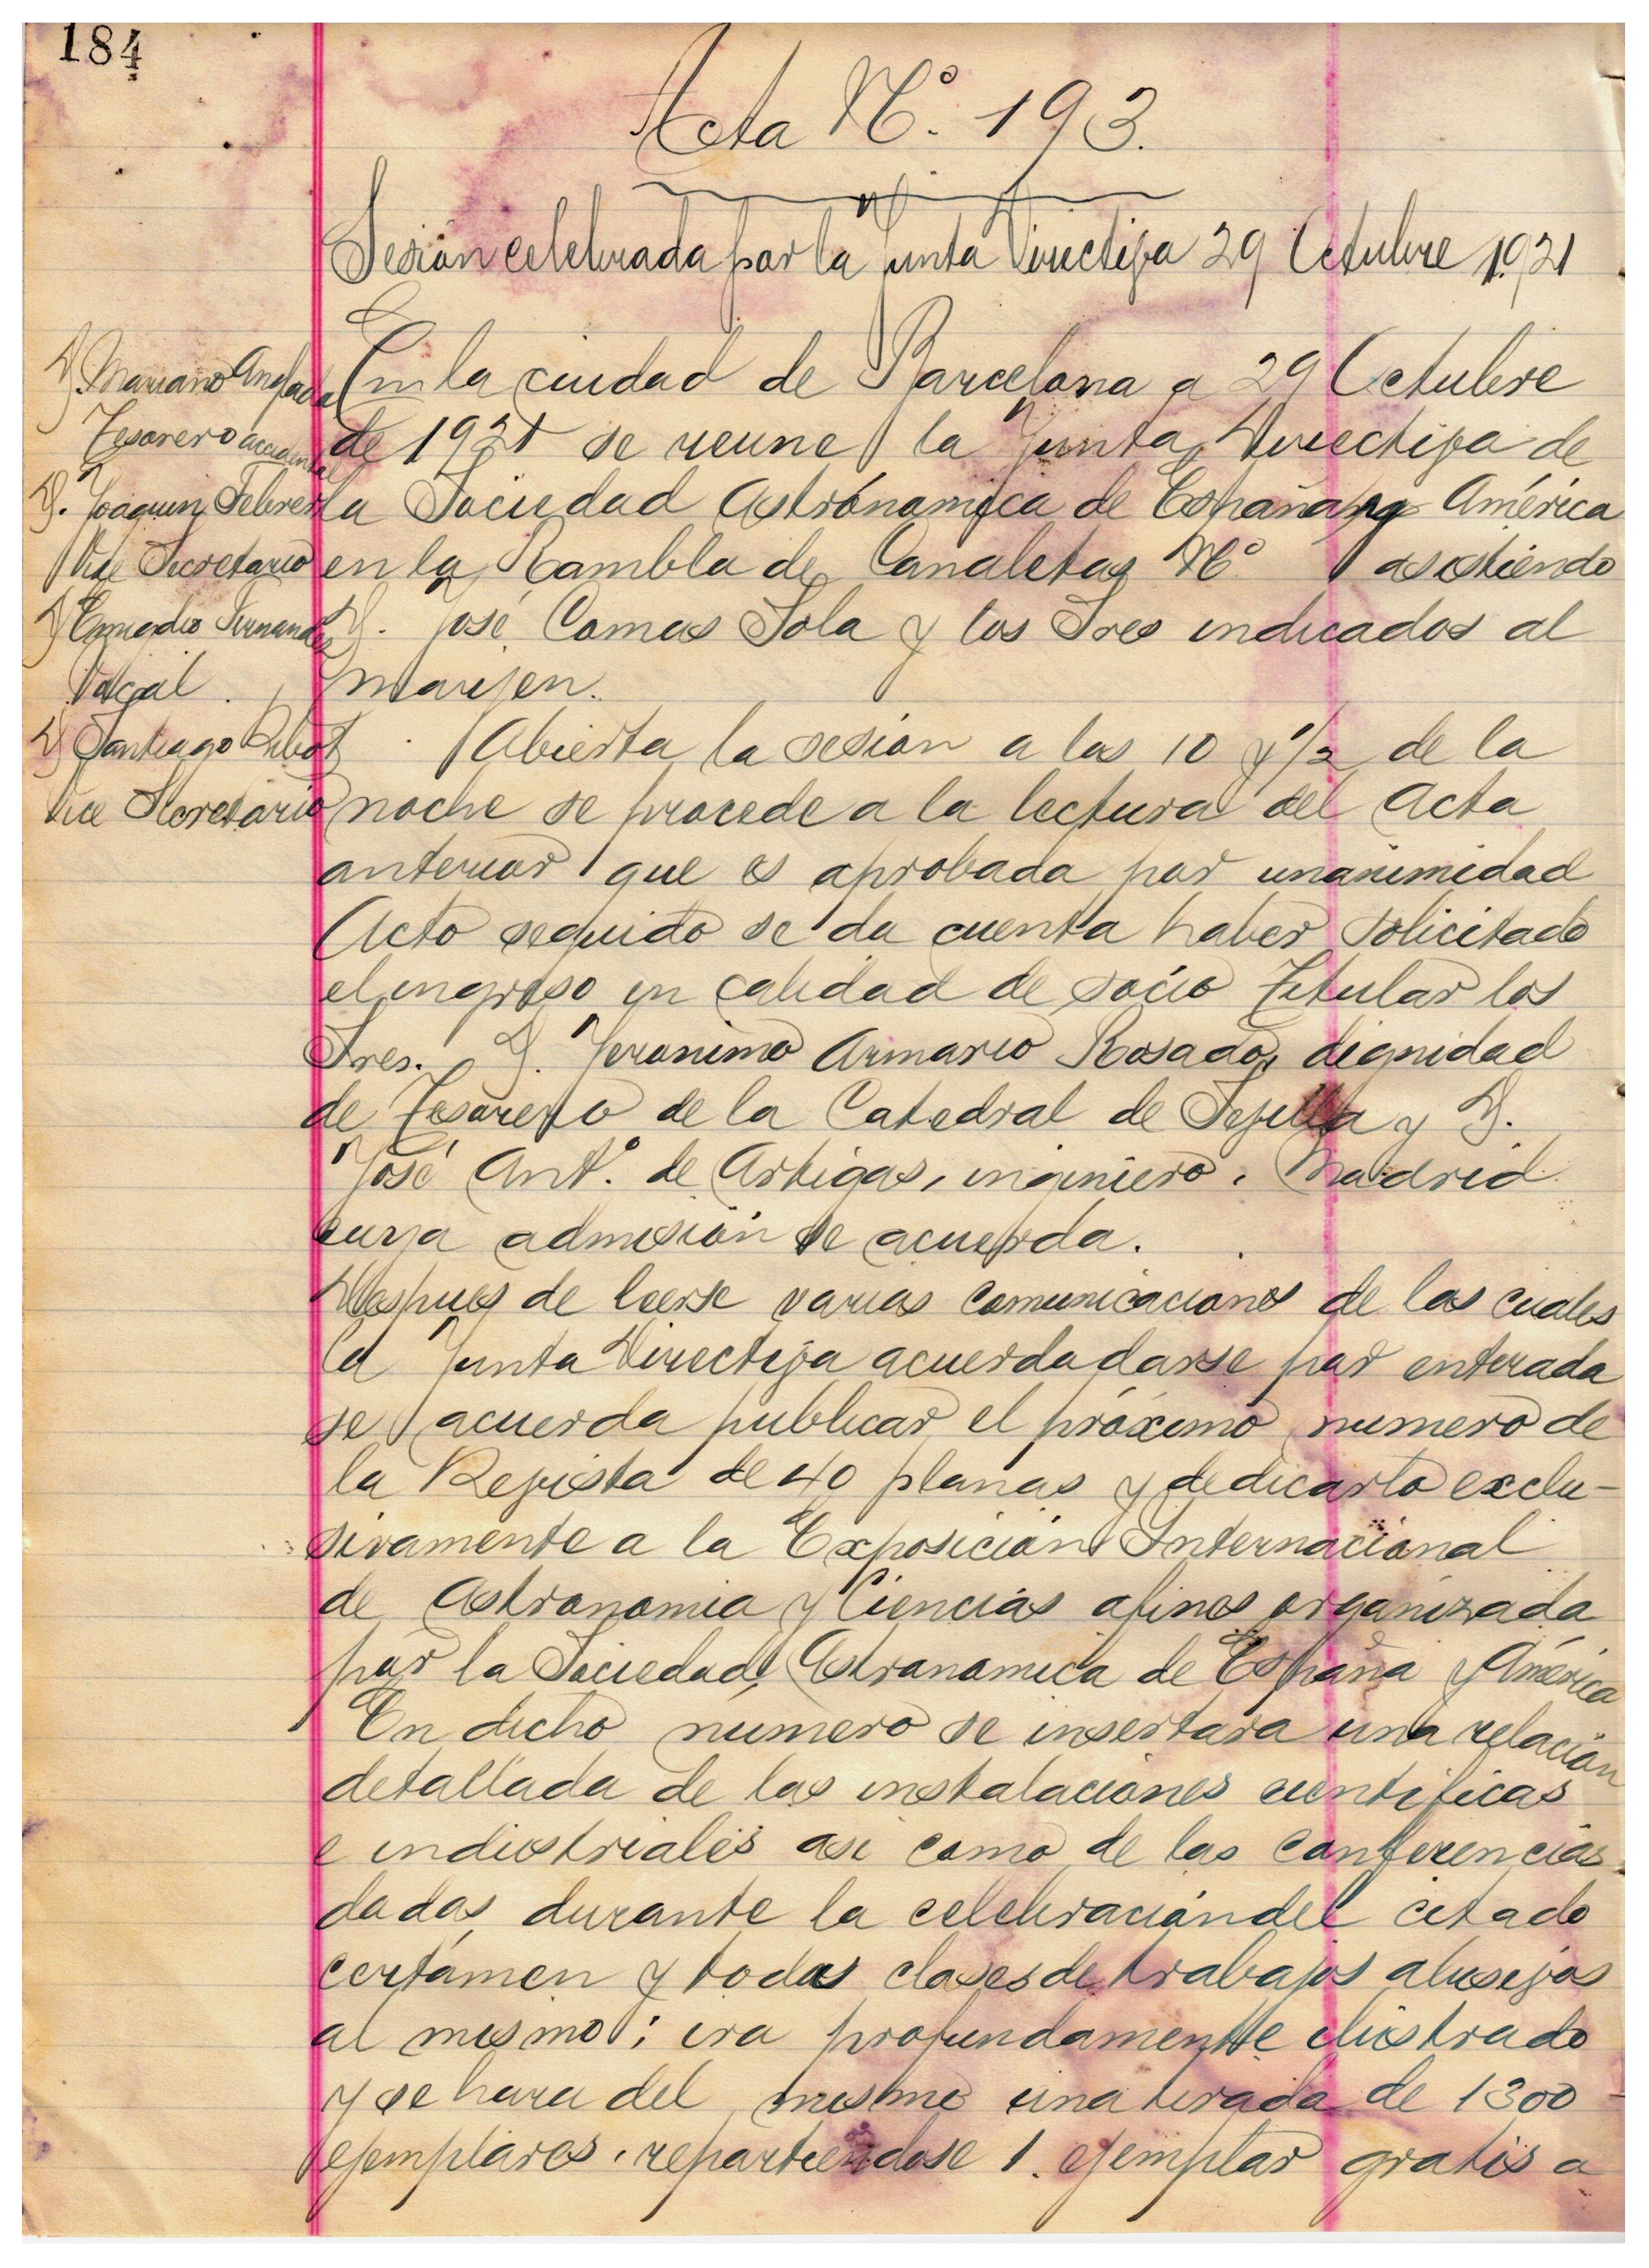 184
Acta Nº. 193.
Sesión celebrada por la Junta Directiva 29 Octubre 1921
D. Mariano Anglada
Tesorero accidental
D. Joaquin Febrer
Vice Secretario
D Emigdio Fernandez
Vocal.
D Santiago Ribot
Vice Secretario
En la ciudad de Barcelona a 29 Octubre
de 1921 se reune la Junta Directiva de
la Sociedad Astrónomica de España y América
en la Rambla de Canaletas Nº asistiendo
D. José Comas Sola y los Sres indicados al
marjen.
Abierta la sesión a las 10 y 1/2 de la
noche se procede a la lectura del Acta
anterior que es aprobada por unanimidad
Acto seguido se da cuenta haber solicitado
el ingreso en calidad de socio Titular los
Sres. D. Jeronimo Armario Rosado, dignidad
de Tesorero de la Catedral de Sevilla y D.
José Antº. de Artigas, ingeniero. Madrid
cuya admisión se acuerda.
Despues de leerse varias comunicaciones de las cuales
la Junta Directiva acuerda darse por enterada
se acuerda publicar el próximo numero de
la Revista de 40 planas y dedicarlo exclu-
sivamente a la Exposición Internacional
de Astronomia y Ciencias afines organizada
por la Sociedad Astronomica de España y América
En dicho numero se insertara una relación
detallada de las instalaciones cientificas
e industriales asi como de las conferencias
dadas durante la celebración del citado
certámen y todas clases de trabajos alusivos
al mismo; ira profundamente ilustrado
y se hara del mismo una tirada de 1300
ejemplares. repartiendose 1. ejemplar gratis a